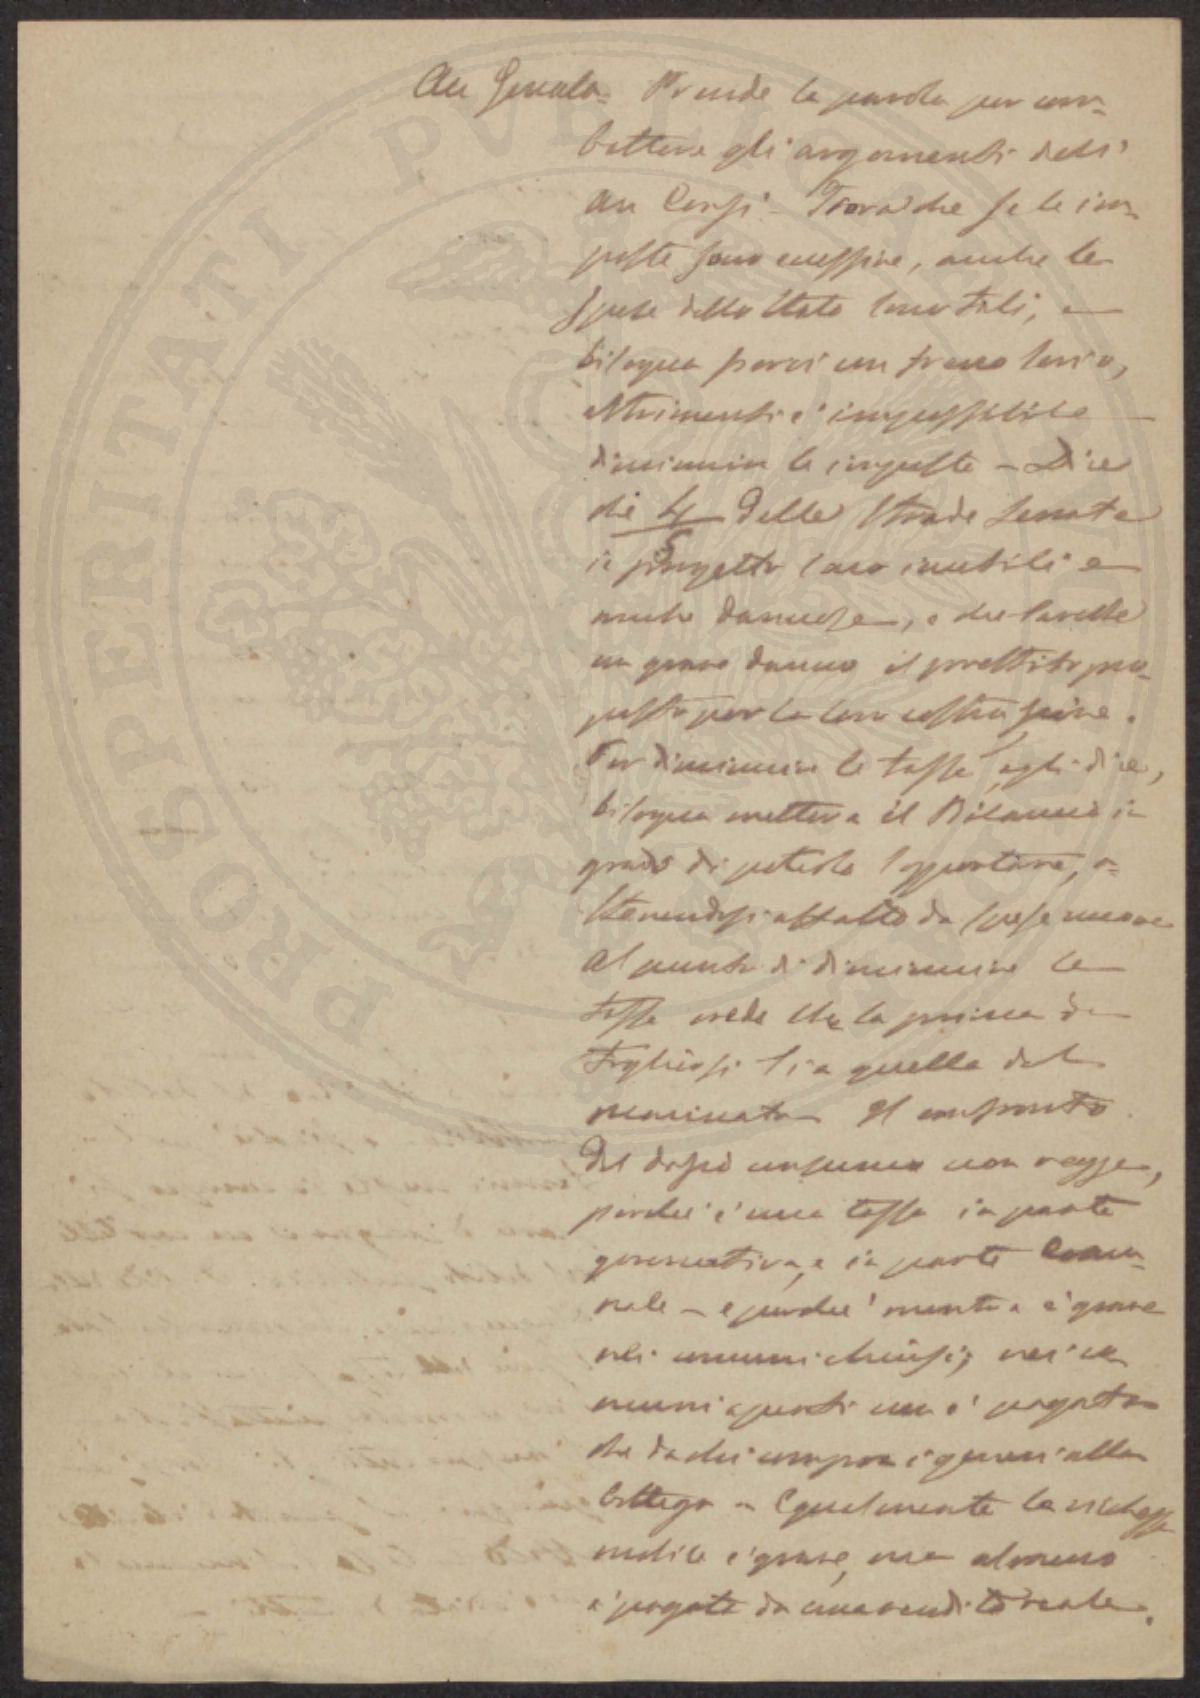 Avv Genala - Prende la parola per com-
battere gli argomenti dell'
Avv Corsi - Trova che se le im-
poste sono eccessive, anche le
spese dello Stato sono tali, e
bisogna porci un freno serio,
altrimenti è impossibile
diminuire le imposte - Dice
che 4/5 delle strade
in progetto sono inutili e
anche dannose, e che sarebbe
un grave danno il prestito pro-
posto per la loro costruzione.
Per diminuire le tasse, egli dice,
bisogna mettere il Bilancio in
grado di poterlo sopportare, a-
stenendosi affatto da spese nuove
Al punto di diminuire le
tasse crede che la prima da
togliersi sia quella del
macinato. Il confronto
del dazio consumo non regge,
perché è una tassa in parte
governativa, e in parte comu-
nale - e perché mentre è grave
nei comuni chiusi, nei co-
muni aperti non è pagata
che da chi compra i generi alla
bottega - Egualmente la ricchezza
mobile è grave, ma almeno
è pagata da una rendita reale.
PVBLICAE
PROSPERITATI